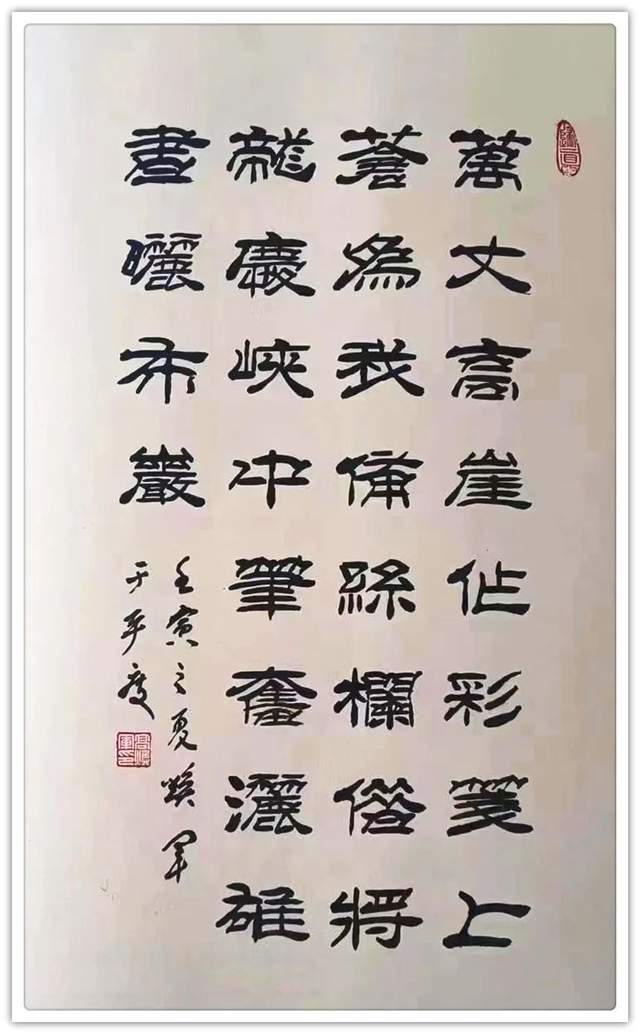 萬丈高崖作彩箋上
蒼為我備絲欄借將
龍慶峽中筆奮灑雄
書曬布巖
壬寅之夏煥軍
于平度